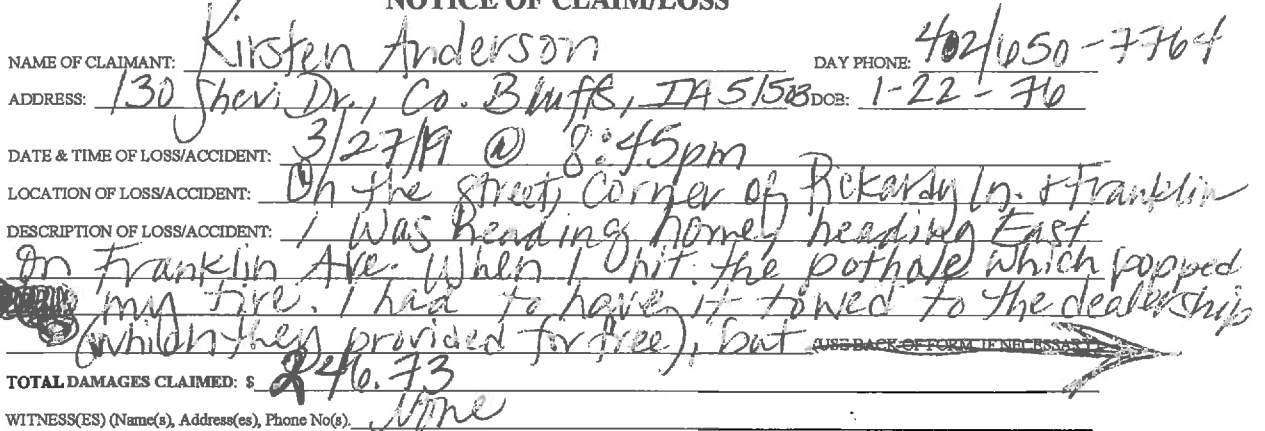 NOTICE OF CLAIM/LOSS
NAME OF CLAIMANT: Kirsten Anderson DAY PHONE: 402/650-7764
ADDRESS: 130 Shevi Dr., Co. Bluffs, IA 51503 DOB: 1-22-76
DATE & TIME OF LOSS/ACCIDENT: 3/27/19 @ 8:45pm
LOCATION OF LOSS/ACCIDENT: On the street, Corner of Ln. & Franklin
DESCRIPTION OF LOSS/ACCIDENT: I was heading home, heading East
on Franklin Ave. When I hit the pothole which popped
my tire. I had to have it towed to the dealership
(which they provided for free), but (USE BACK OF FORM IF NECESSARY)
TOTAL DAMAGES CLAIMED: $ 246.73
WITNESS(ES) (Name(s), Address(es), Phone No(s). None